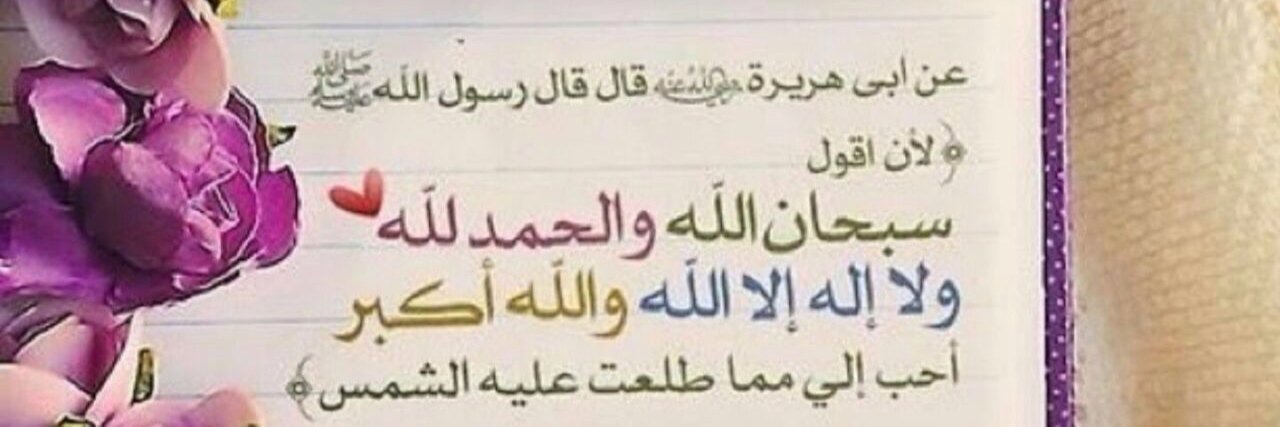 عن أبى هريرة رضي الله عنه قال قال رسول الله صلى الله عليه وسلم
﴿ لأن اقول
سبحان الله والحمد لله
ولا إله إلا الله والله أكبر
أحب إلي مما طلعت عليه الشمس ﴾